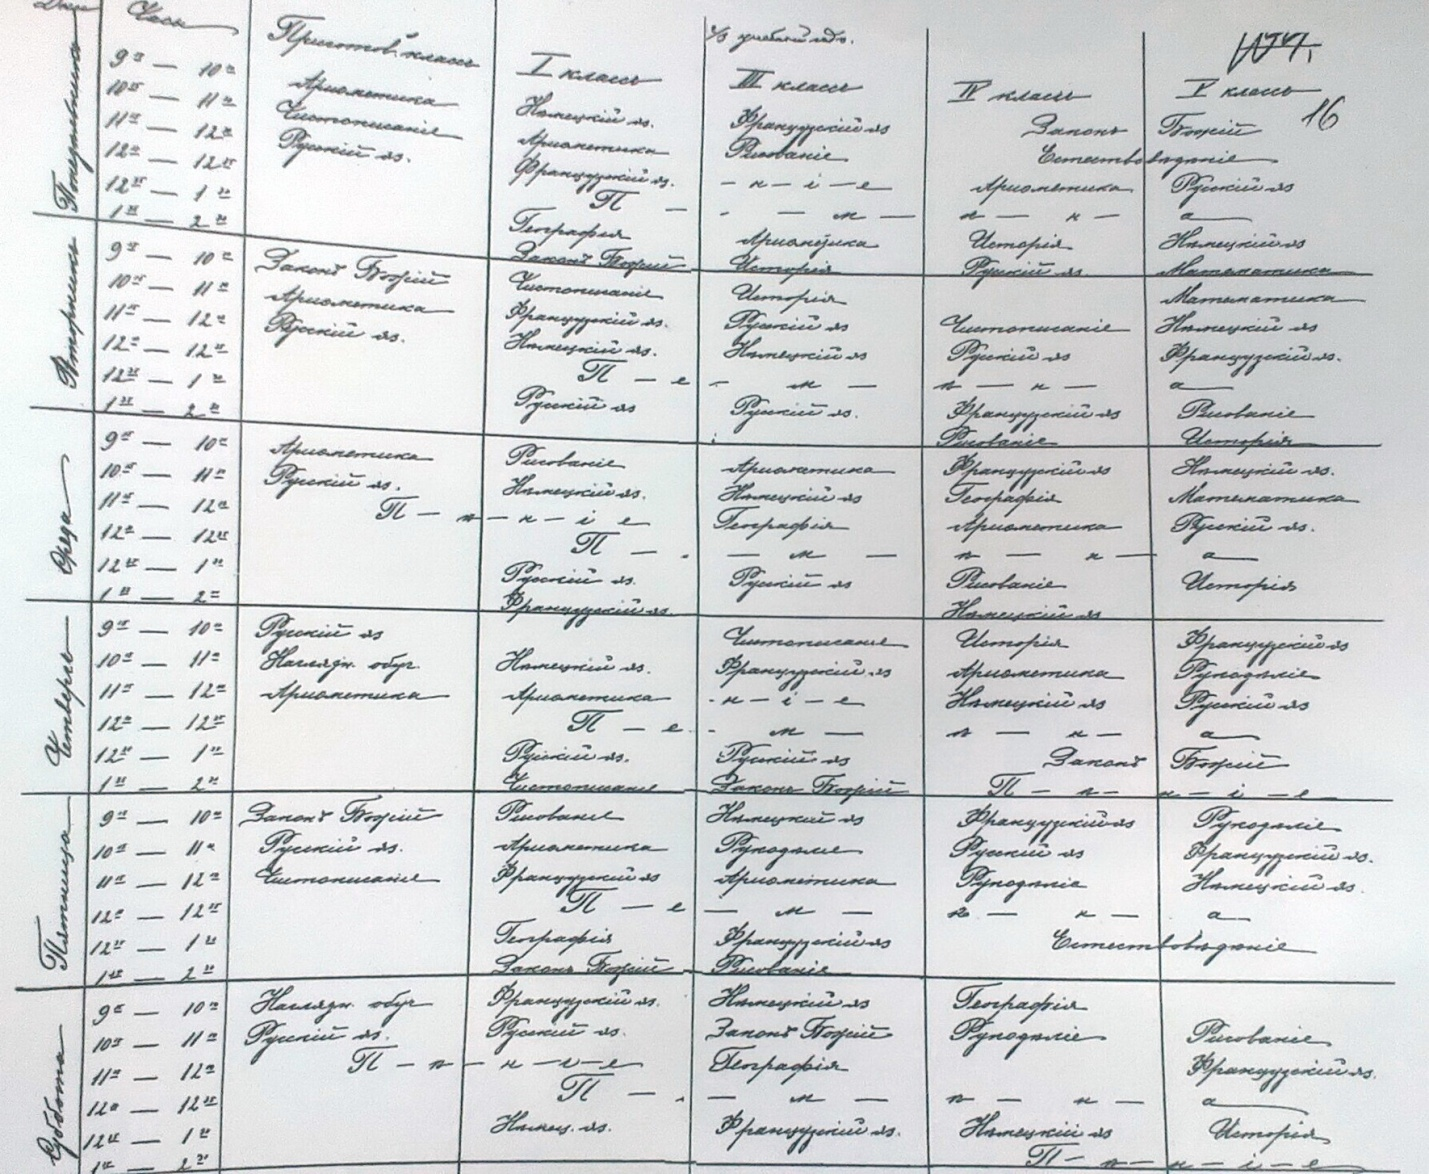 Дни Часы Приготов. классъ I классъ III классъ IV классъ V классъ
уч. учебный годъ.
16
Понедѣльникъ
9 — 10 Ариѳметика Нѣмецкій яз. Французскій яз Законъ Божій
10 — 11 Чистописаніе Ариѳметика Рисованіе Естествовѣдѣніе
11 — 12 Русскій яз. Французскій яз. - н - і - е Ариѳметика Русскій яз
12 — 12 П — - — м — н — н — а
12 — 1 Географія Ариѳметика Исторія Нѣмецкій яз
1 — 2 Законъ Божій Исторія Русскій яз Математика
Вторникъ
9 — 10 Законъ Божій Чистописаніе Исторія Математика
10 — 11 Ариѳметика Французскій яз. Русскій яз Чистописаніе Нѣмецкій яз
11 — 12 Русскій яз. Нѣмецкій яз. Нѣмецкій яз Русскій яз Французскій яз.
12 — 12 П — е - м — н — н — а
12 — 1 Русскій яз Русскій яз. Французскій яз Рисованіе
1 — 2 Рисованіе Исторія
Среда
9 — 10 Ариѳметика Рисованіе Ариѳметика Французскій яз Нѣмецкій яз.
10 — 11 Русскій яз. Нѣмецкій яз. Нѣмецкій яз Географія Математика
11 — 12 П — ѣ — н — і — е Географія Ариѳметика Русскій яз.
12 — 12 П — . — м — н — н — а
12 — 1 Русскій яз. Русскій яз Рисованіе Исторія
1 — 2 Французскій яз. Нѣмецкій яз
Четвергъ
9 — 10 Русскій яз Чистописаніе Исторія Французскій яз
10 — 11 Наглядн. обуч. Нѣмецкій яз. Французскій яз Ариѳметика Рукодѣліе
11 — 12 Ариѳметика Ариѳметика - н - і - е Нѣмецкій яз Русскій яз
12 — 12 П — е - м — н — н — а
12 — 1 Русскій яз. Русскій яз Законъ Божій
1 — 2 Чистописаніе Законъ Божій П — ѣ — н — і — е
Пятница
9 — 10 Законъ Божій Рисованіе Нѣмецкій яз Французскій яз Рукодѣліе
10 — 11 Русскій яз. Ариѳметика Рукодѣліе Русскій яз Французскій яз.
11 — 12 Чистописаніе Французскій яз Ариѳметика Рукодѣліе Нѣмецкій яз.
12 — 12 П — е — м — н — н — а
12 — 1 Географія Французскій яз Естествовѣдѣніе
1 — 2 Законъ Божій Рисованіе
Суббота
9 — 10 Наглядн. обуч Французскій яз. Нѣмецкій яз Географія
10 — 11 Русскій яз. Русскій яз. Законъ Божій Рукодѣліе Рисованіе
11 — 12 П — ѣ — н — і — е Географія Французскій яз.
12 — 12 П — . — м — н — н — а
12 — 1 Нѣмец. яз. Французскій яз. Нѣмецкій яз Исторія
1 — 2 П — ѣ — н — і — е